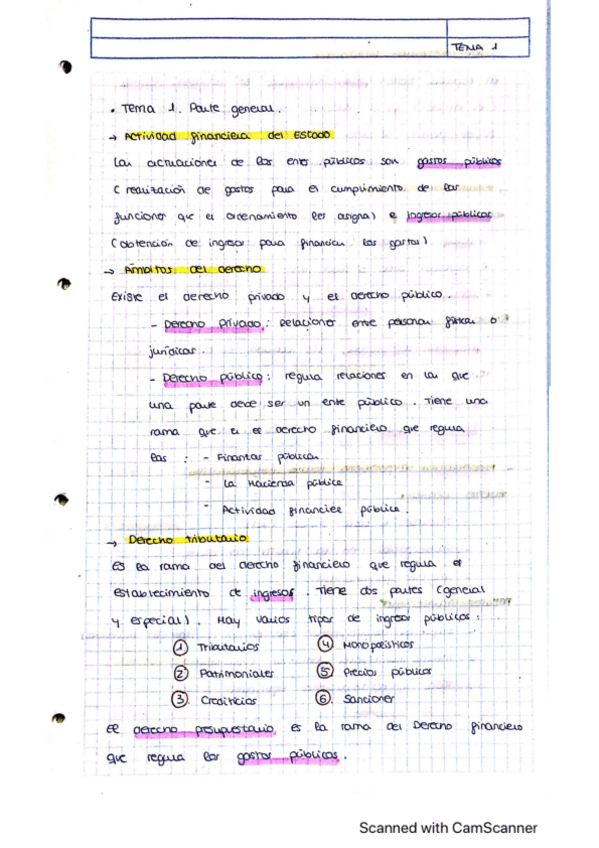 TEMA 1
• Tema 1. Parte general.
→ Actividad financiera del Estado
Las actuaciones de los entes públicos son gastos públicos
(realización de gastos para el cumplimiento de las
funciones que el ordenamiento les asigna) e ingresos públicos
(obtención de ingresos para financiar los gastos)
→ Ámbitos del derecho
Existe el derecho privado y el derecho público.
- Derecho Privado: Relaciones entre personas físicas o
jurídicas.
- Derecho público: regula relaciones en las que
una parte debe ser un ente público. Tiene una
rama que es el derecho financiero que regula
las: - Finanzas públicas
- La Hacienda pública
- Actividad financiera pública.
→ Derecho tributario
Es la rama del derecho financiero que regula el
establecimiento de ingresos. Tiene dos partes (general
y especial). Hay varios tipos de ingresos públicos:
1 Tributarios 4 Monopolísticos
2 Patrimoniales 5 Precios públicos
3 Crediticios 6 Sanciones
El derecho presupuestario, es la rama del Derecho financiero
que regula los gastos públicos.
Scanned with CamScanner